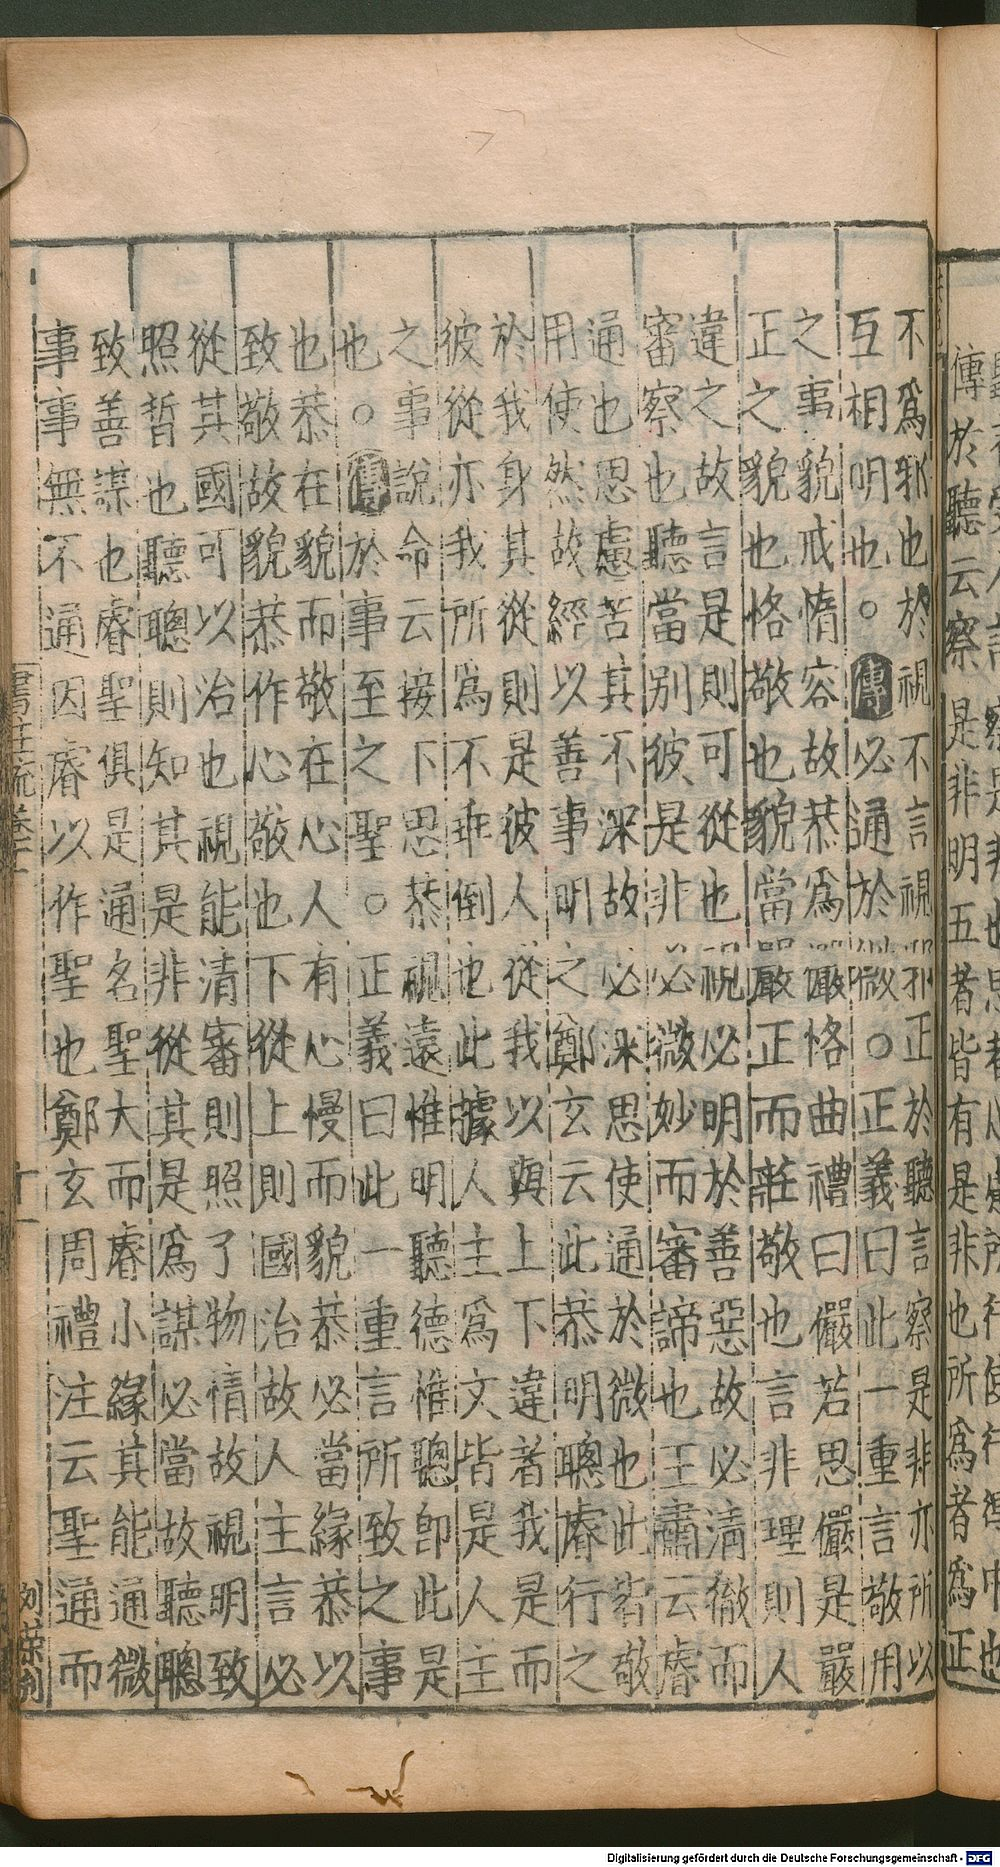 傳於聽云察是非明五者皆有是非也所爲者爲正
不爲邪也於視不言視邪正於聽言察是非亦所以
互相明也○傳必通於微○正義曰此一重言敬用
之事貌戒惰容故恭爲儼恪曲禮曰儼若思儼是嚴
正之貌也恪敬也貌當嚴正而莊敬也言非理則人
違之故言是則可從也視必明於善惡故必清徹而
審察也聽當別彼是非必微妙而審諦也王肅云睿
通也思慮苦其不深故必深思使通於微也此皆敬
用使然故經以善事明之鄭玄云此恭明聰睿行之
於我身其從則是彼人從我以與上下違者我是而
彼從亦我所爲不乖倒也此據人主爲文皆是人主
之事說命云接下思恭視遠惟明聽德惟聰即此是
也○傳於事至之聖○正義曰此一重言所致之事
也恭在貌而敬在心人有心慢而貌恭必當緣恭以
致敬故貌恭作心敬也下從上則國治故人主言必
從其國可以治也視能清審則照了物情故視明致
照晢也聽聰則知其是非從其是爲謀必當故聽聰
致善謀也睿聖俱是通名聖大而睿小緣其能通微
事事無不通因睿以作聖也鄭玄周禮注云聖通而
Digitalisierung gefördert durch die Deutsche Forschungsgemeinschaft - DFG